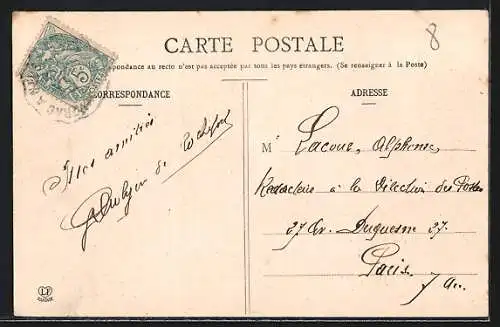 8
CARTE POSTALE
pondance au recto n'est pas acceptée par tous les pays étrangers. (Se renseigner à la Poste)
CORRESPONDANCE
ADRESSE
5
Mes amitiés
de Rochefort
M Lacoue, Alphonse
Rédacteur à la Direction des Postes
37 Av. Duquesne 37.
Paris. 7 Ar.
LF